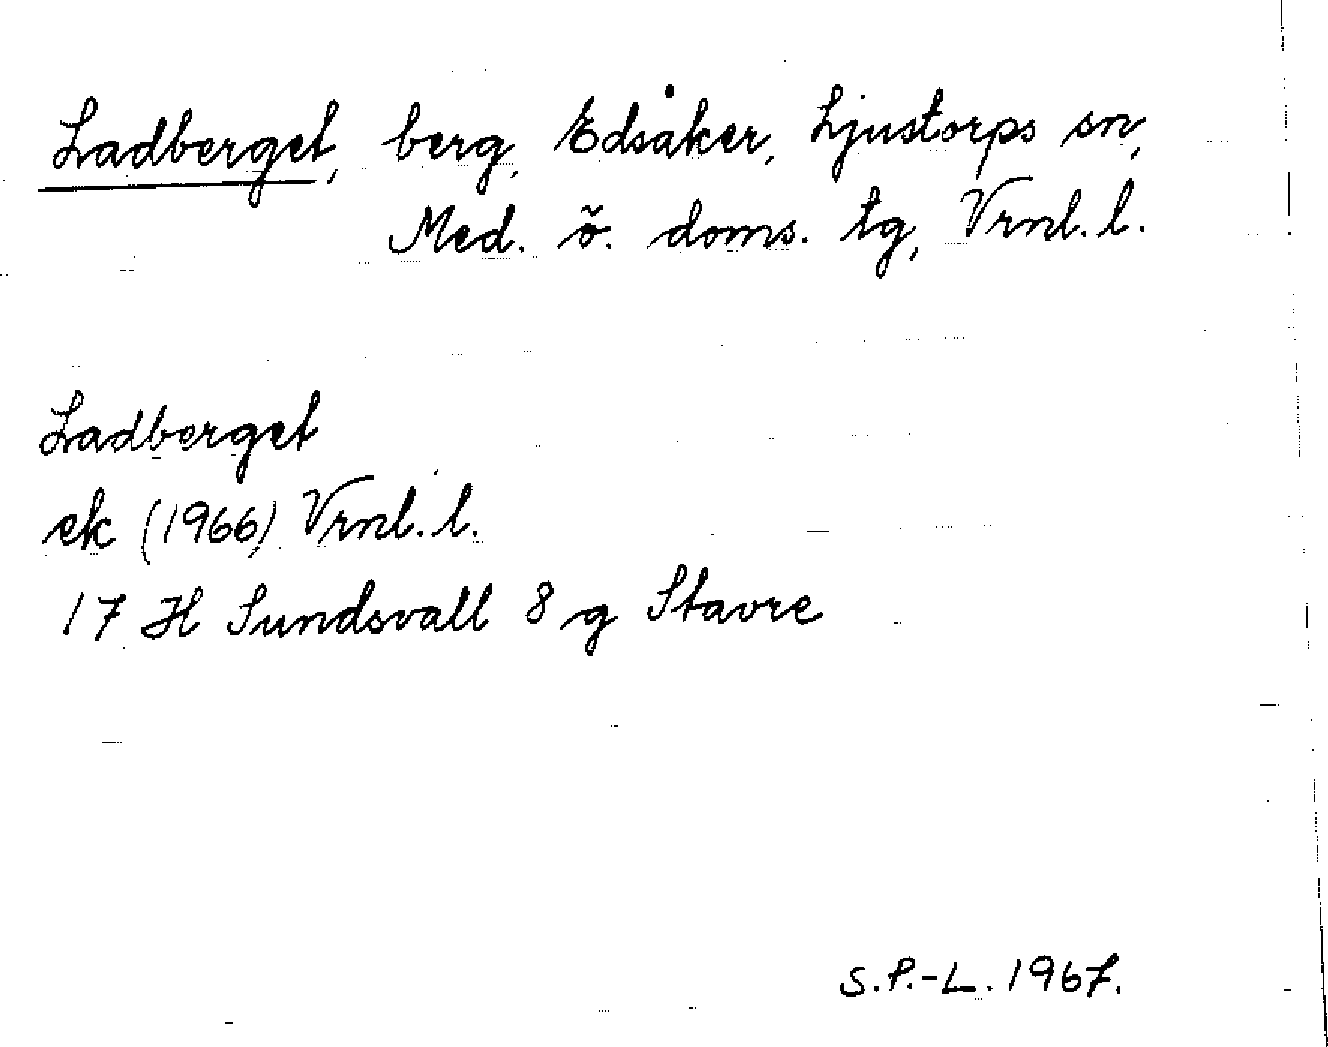 Ladberget, berg, Edsåker, Ljustorps sn,
Med. ö. doms. tg, Vrnl. l.
Ladberget
ek (1966) Vrnl. l.
17 H Sundsvall 8 g Stavre
S.P.-L. 1967.